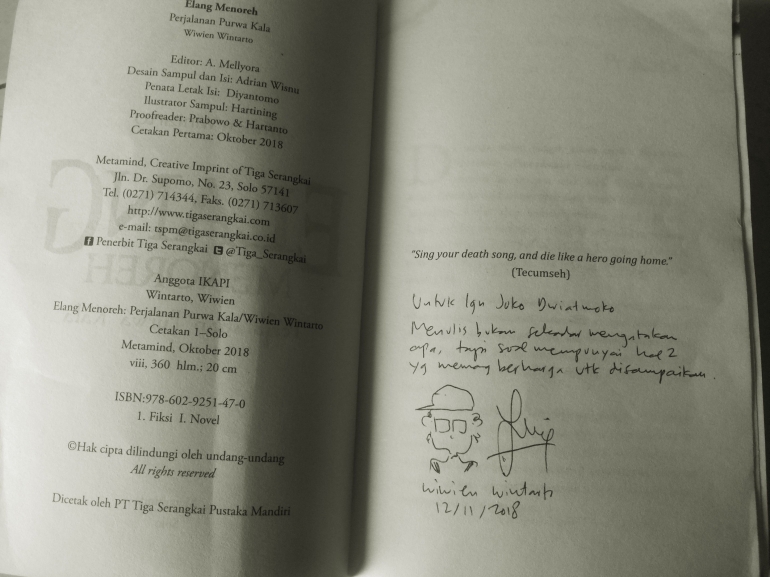 Elang Menoreh
Perjalanan Purwa Kala
Wiwien Wintarto
Editor: A. Mellyora
Desain Sampul dan Isi: Adrian Wisnu
Penata Letak Isi: Diyantomo
Ilustrator Sampul: Hartining
Proofreader: Prabowo & Hartanto
Cetakan Pertama: Oktober 2018
Metamind, Creative Imprint of Tiga Serangkai
Jln. Dr. Supomo, No. 23, Solo 57141
Tel. (0271) 714344, Faks. (0271) 713607
http://www.tigaserangkai.com
e-mail: tspm@tigaserangkai.co.id
Penerbit Tiga Serangkai @Tiga_Serangkai
Anggota IKAPI
Wintarto, Wiwien
Elang Menoreh: Perjalanan Purwa Kala/Wiwien Wintarto
Cetakan 1–Solo
Metamind, Oktober 2018
viii, 360 hlm.; 20 cm
ISBN:978-602-9251-47-0
1. Fiksi I. Novel
©Hak cipta dilindungi oleh undang-undang
All rights reserved
Dicetak oleh PT Tiga Serangkai Pustaka Mandiri
"Sing your death song, and die like a hero going home."
(Tecumseh)
Untuk Ign Joko Dwiatmoko
Menulis bukan sekadar mengatakan
apa, tapi soal mempunyai hal2
yg memang berharga utk disampaikan.
Wiwien Wintarto
12/11/2018